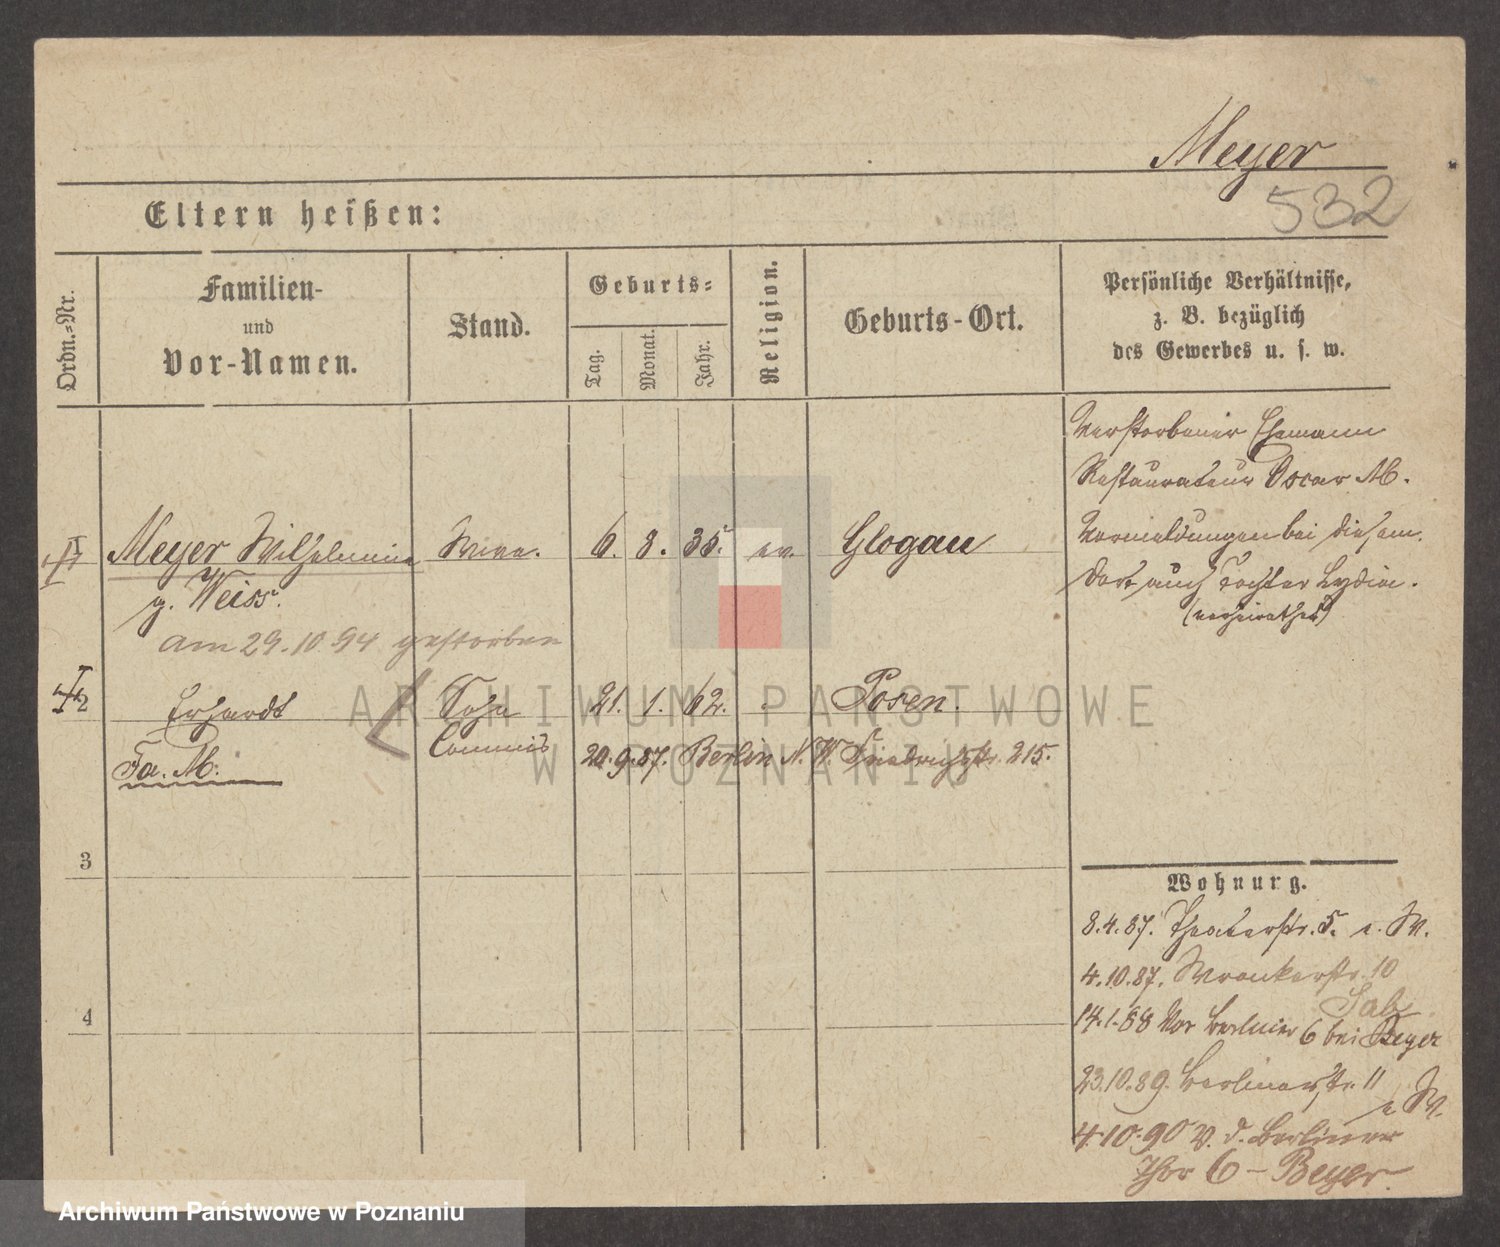 Meyer
532
Eltern heißen:
Ordn.-Nr.
Familien-
und
Vor-Namen.
Stand.
Geburts-
Tag.
Monat.
Jahr.
Religion.
Geburts-Ort.
Persönliche Verhältnisse,
z. B. bezüglich
des Gewerbes u. s. w.
Verstorbener Ehemann
Restaurateur Oscar M.
Vermeldungen bei diesem.
Dort auch Tochter Lydia.
(verheirathet)
Meyer Wilhelmine Wwe. 6. 8. 35. ev. Glogau
g. Weiss.
am 29.10.94 gestorben
2 Erhardt Sohn 21. 1. 62. Posen.
Commis 20.9.87. Berlin N.W. Friedrichstr. 215.
Fa. M.
3
4
Wohnung.
8.4.87. Theaterstr. 5. e. W.
4.10.87. Wronkerstr. 10
14.1.88 Vor Berliner 6 bei Beyer
23.10.89. Berlinerstr. 11
e. W.
4.10.90 v. d. Berliner
Thor 6 - Beyer.
ARCHIWUM PAŃSTWOWE
W POZNANIU
Archiwum Państwowe w Poznaniu